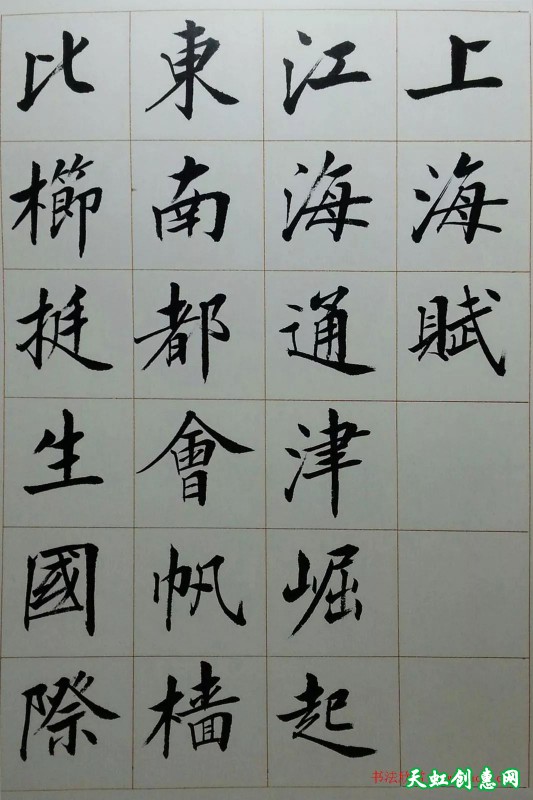 上海賦
江海通津崛起
東南都會帆檣
比櫛挺生國際
天虹创惠网